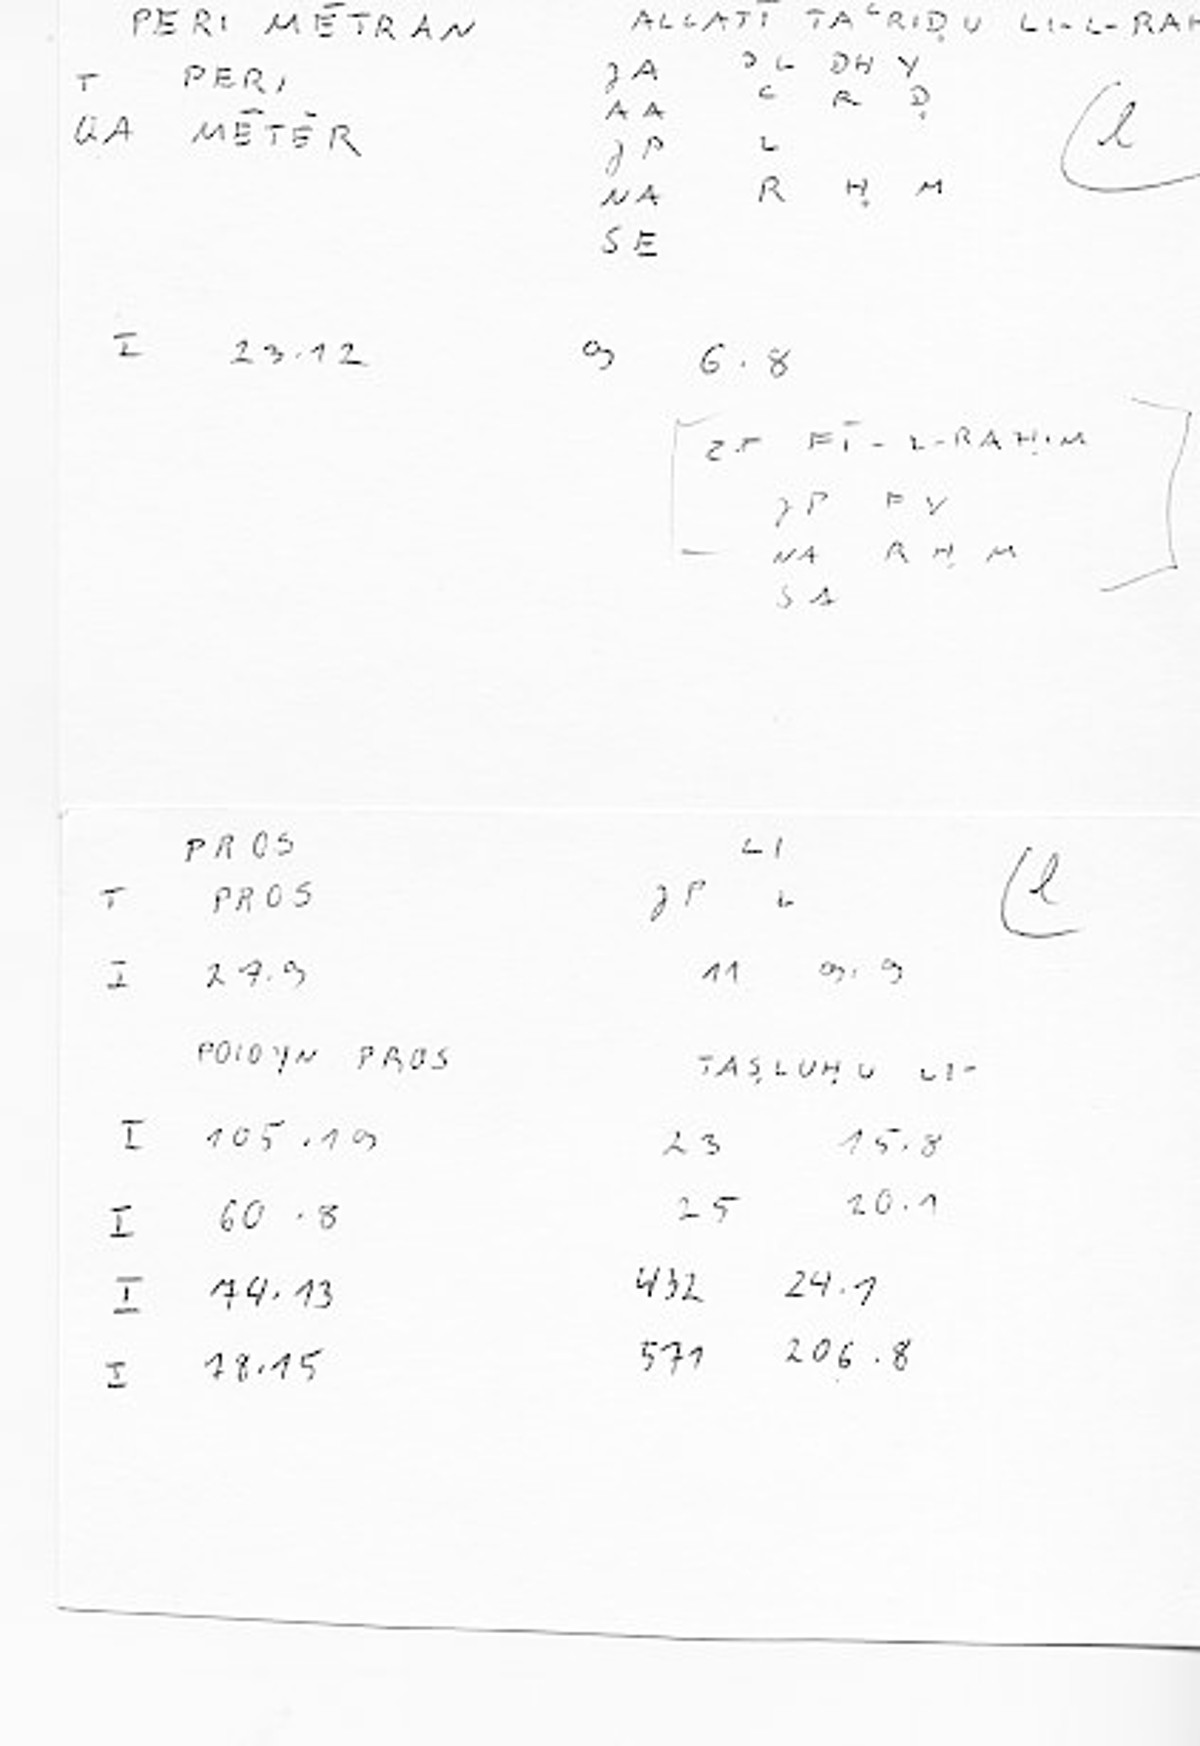 PERI MĒTRAN ALLATĪ TAʿRIḌU LI-L-RAḤ
T PERI JA ʾL DHY
QA MĒTĒR AA ʿ R Ḍ
JP L (l
NA R Ḥ M
SE
I 23.12 9 6.8
25 FĪ-L-RAḤIM
JP F Y
NA R Ḥ M
SA
PROS LI
T PROS JP L (l
I 27.9 11 9.9
POIOYN PROS TAṢLUḤU LI-
I 105.19 23 15.8
I 60.8 25 20.1
I 74.13 432 24.1
I 78.15 571 206.8